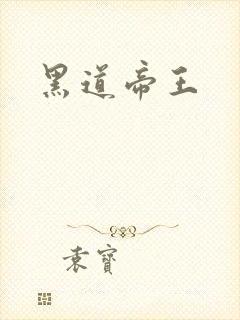 黑道帝王
袁寶